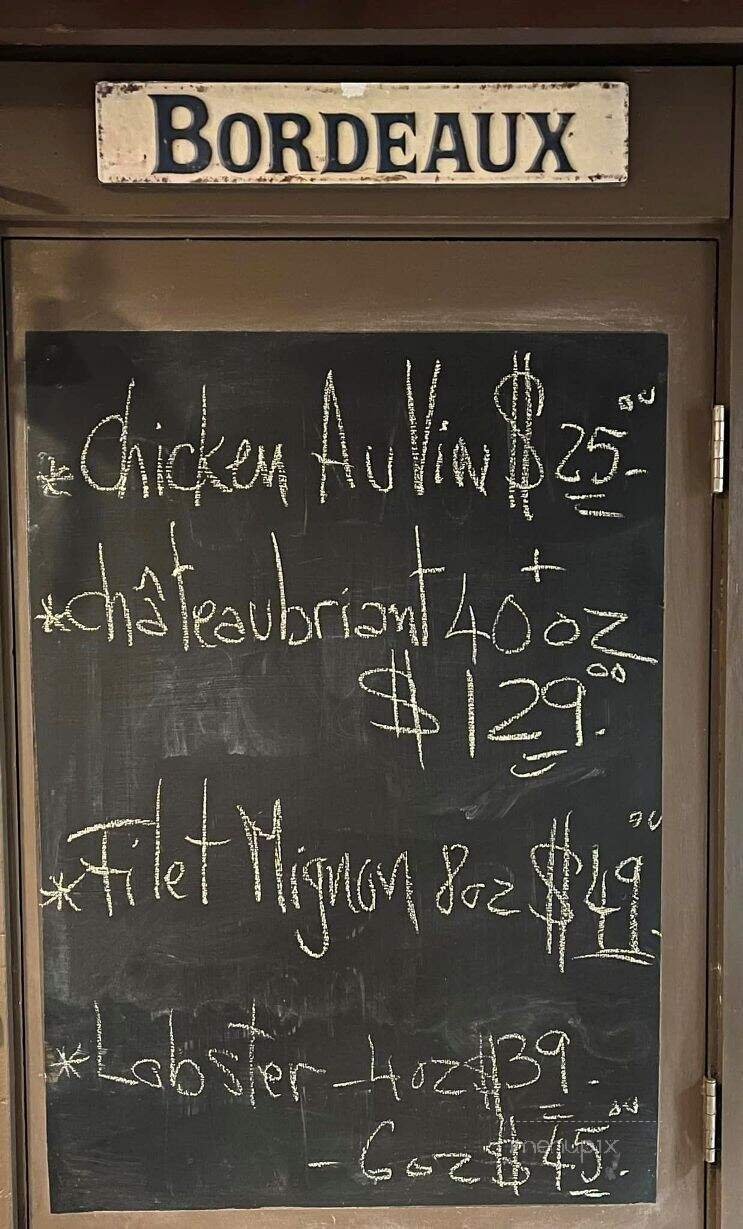 BORDEAUX
*Chicken Au Vin $25.00
*châteaubriant 40+oz
$129.00
*Filet Mignon 8oz $49.00
*Lobster -4oz $39.
-6oz $45.00
menupix